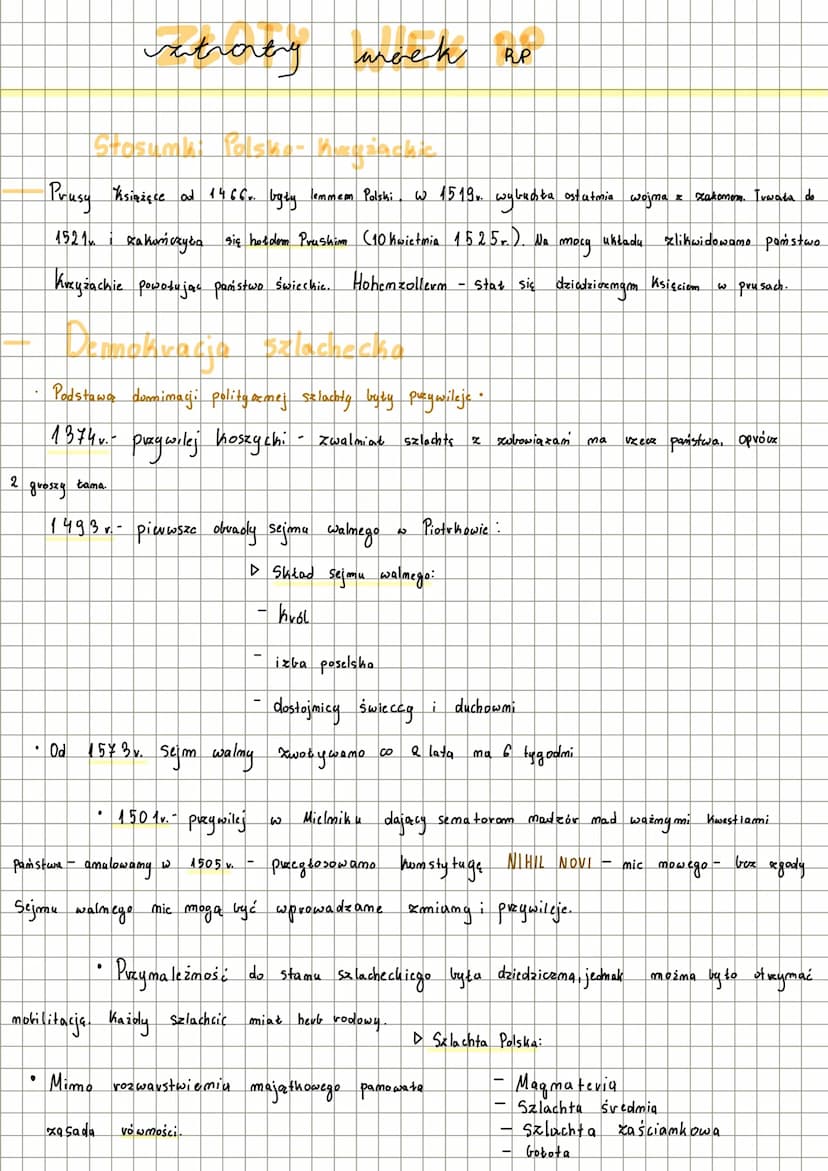 ZŁOTY WIEK RP
złoty wiek RP
Stosunki Polsko-Krzyżackie
— Prusy Książęce od 1466r. były lennem Polski. W 1519r. wybuchła ostatnia wojna z zakonem. Trwała do
1521r. i zakończyła się hołdem Pruskim (10 Kwietnia 1525r.). Na mocy układu zlikwidowano państwo
Krzyżackie powołując państwo świeckie. Hohenzollern - stał się dziedzicznym Księciem w prusach.
— Demokracja szlachecka
· Podstawą dominacji politycznej szlachty były przywileje ·
1374r.- przywilej koszycki - zwalniał szlachtę z zobowiązań na rzecz państwa, oprócz
2 groszy łana.
1493r.- pierwsze obrady sejmu walnego w Piotrkowie:
▷ Skład sejmu walnego:
- król
- izba poselska
- dostojnicy świeccy i duchowni
· Od 1573r. Sejm walny zwoływano co 2 lata na 6 tygodni
· 1501r.- przywilej w Mielniku dający senatorom nadzór nad ważnymi kwestiami
państwa - anulowany w 1505r. - przegłosowano konstytucję NIHIL NOVI - nic nowego - bez zgody
Sejmu walnego nic mogą być wprowadzane zmiany i przywileje.
· Przynależność do stanu szlacheckiego była dziedziczna, jednak można było otrzymać
nobilitację. Każdy szlachcic miał herb rodowy.
▷ Szlachta Polska:
· Mimo rozwarstwienia majątkowego panowała
zasada równości.
- Magnateria
- Szlachta średnia
- Szlachta zaściankowa
- Gołota